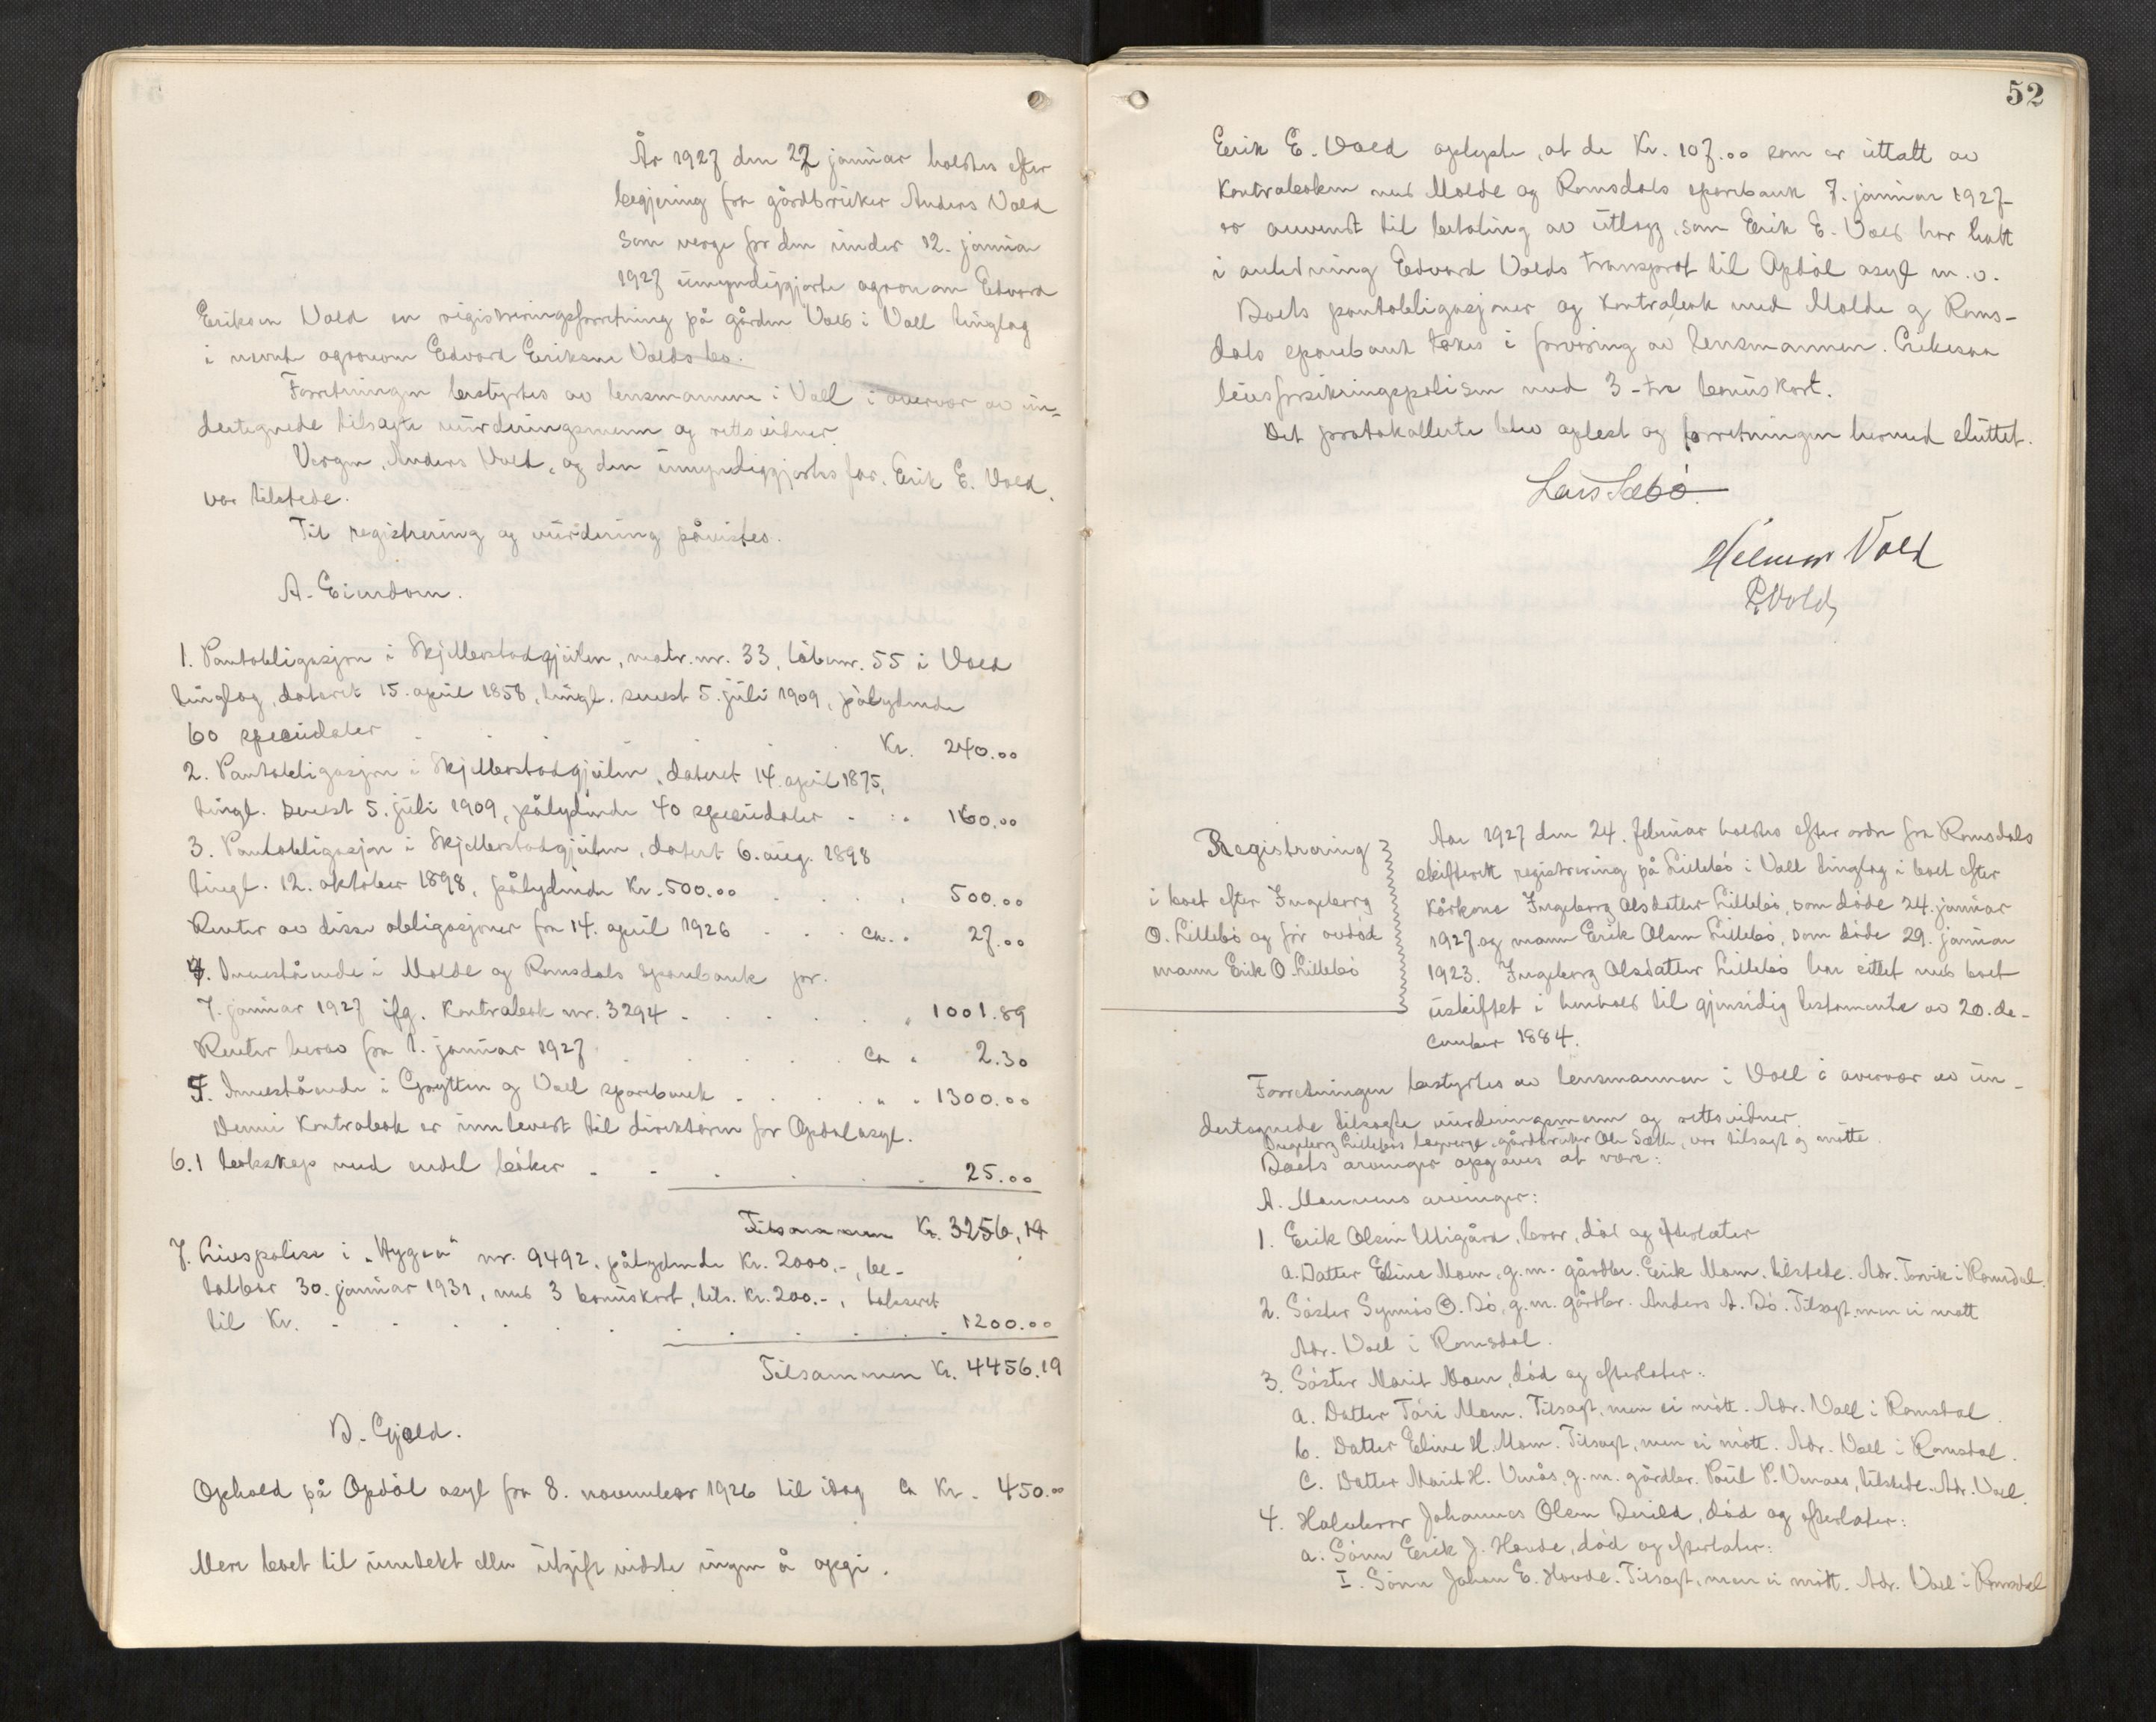 År 1927 den 27 januar holdtes efter
begjering fra gårdbruker Anders Vold
som verge for den under 12. januar
1927 umyndiggjorte agronom Edvard
Eriksen Vold en registreringsforretning på gården Vold i Voll tinglag
i nevnte agronom Edvard Eriksen Volds bo.
Forretningen bestyrtes av lensmannen i Voll i overvær av un-
dertegnede tilsagte vurderingsmenn og rettsvidner.
Vergen, Anders Vold, og den umyndiggjortes far, Erik E. Vold,
var tilstede.
Til registrering og vurdering påvistes.
A. Eiendom.
1. Pantobligasjon i Skjelbostadgjulen, matr. nr. 33, löbenr. 55 i Vold
tinglag, datert 15. april 1858, tingl. senest 5. juli 1909, pålydende
60 speciedaler . . . . . . Kr. 240.00
2. Pantobligasjon i Skjelbostadgjulen, datert 14. april 1875,
tingl. senest 5. juli 1909, pålydende 40 speciedaler . . . 160.00
3. Pantobligasjon i Skjelbostadgjulen, datert 6. aug. 1898
tingl. 12. oktober 1898, pålydende Kr. 500.00 . . . . 500.00
Renter av disse obligasjoner fra 14. april 1926 . . . ca. . 27.00
4. Innestående i Molde og Romsdals sparebank pr.
7. januar 1927 ifg. kontrabok nr. 3294 . . . . . . 1001.89
Renter herav fra 1. januar 1927 . . . . . ca . 2.30
5. Innestående i Grytten og Voll sparebank . . . . " . 1300.00
Denne kontrabok er innlevert til direktören for Opdöl asyl.
6. 1 bokskap med endel böker . . . . . . 25.00
Tilsammen Kr. 3256,19
7. Livspolise i "Hygea" nr. 9492, pålydende Kr. 2000.-, be-
talbar 30. januar 1931, med 3 bonuskort, tils. Kr. 200.-, taksert
til Kr. . . . . . . . . . . . 1200.00
Tilsammen Kr. 4456.19
B. Gjeld.
Ophold på Opdöl asyl fra 8. november 1926 til idag ca Kr. 450.00
Mere boet til inntekt eller utgift vidste ingen å opgi.
52
Erik E. Vold oplyste, at de Kr. 107.00 som er uttatt av
kontraboken med Molde og Romsdals sparebank 7. januar 1927
er anvendt til betaling av utlegg, som Erik E. Vold har hatt
i anledning Edvard Volds transport til Opdöl asyl m.v.
Boets pantobligasjoner og kontrabok med Molde og Roms-
dals sparebank tokes i forvaring av lensmannen. Likesaa
livsforsikringspolisen med 3-tre bonuskort.
Det protokollerte blev oplest og forretningen hermed sluttet.
Lars Sæbö.
Hilmar Vold
P. Vold,
Registrering
i boet efter Ingeborg
O. Lillebö og för avdöd
mann Erik O. Lillebö
Aar 1927 den 24. februar holdtes efter ordre fra Romsdals
skifterett registrering på Lillebö i Voll tinglag i boet efter
kårkone Ingeborg Olsdatter Lillebö, som döde 24. januar
1927 og mann Erik Olsen Lillebö, som döde 29. januar
1923. Ingeborg Olsdatter Lillebö har sittet med boet
uskiftet i henhold til gjensidig testamente av 20. de-
cember 1884.
Forretningen bestyrtes av lensmannen i Voll i overvær av un-
dertegnede tilsagte vurderingsmenn og rettsvidner.
Ingeborg Lillebös lagverge, gårdbruker Ole Sæth, var tilsagt og mötte.
Boets arvinger opgaves at være:
A. Mannens arvinger:
1. Erik Olsen Utigård, bror, död og efterlater
a. Datter Eline Moen, g.m. gårdbr. Erik Moen, tilstede. Adr. Torvik i Romsdal.
2. Söster Synnöv O. Bö, g.m. gårdbr. Anders A. Bö. Tilsagt, men ei mött
Adr. Voll i Romsdal.
3. Söster Marit Moen, död og efterlater:
a. Datter Töri Moen. Tilsagt, men ei mött. Adr. Voll i Romsdal.
b. Datter Eline H. Moen. Tilsagt, men ei mött. Adr. Voll i Romsdal.
c. Datter Marit H. Venås, g.m. gårdbr. Paul P. Venaas, tilstede. Adr. Voll.
4. Halvbror Johannes Olsen, död og efterlater:
a. Sönn Erik J. Hovde, död og efterlater:
I. Sönn Johan E. Hovde. Tilsagt, men ei mött. Adr. Voll i Romsdal